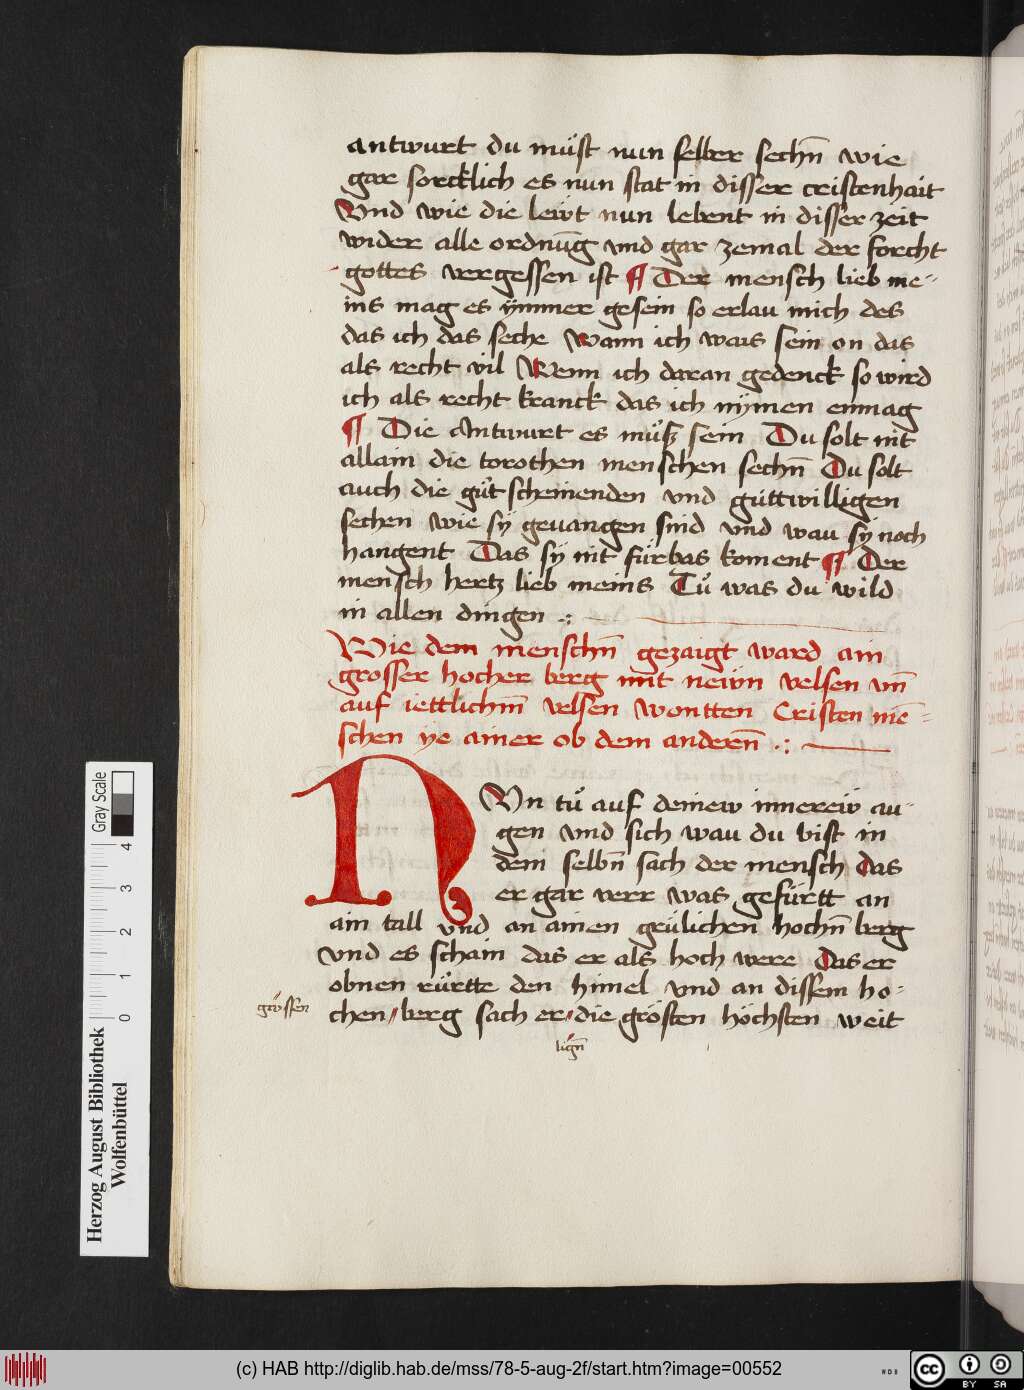 antwurt du müst nun selber sechn̄ wie
gar sorcklich es nun stat in disser cristenhait
Vnd wie die lewt nun lebent in disser zeit
wider alle ordnūg vnd gar zemal der forcht
gottes vergessen ist ¶ Der mensch lieb me-
ins mag es ymmer gesein so erlau mich des
das ich das seche Wann ich wais sein on das
als recht vil Wenn ich daran gedenck so wird
ich als recht kranck das ich nymen enmag
¶ Die Antwurt es müͦsz sein Du solt nit
allain die torothen menschen sechn̄ Du solt
auch die guͦt scheinenden vnd guͦttwilligen
sechen wie sÿ geuangen sind vnd wau sÿ noch
hangent Das sÿ nit fürbas koment ¶ Der
mensch hertz lieb meins Tuͦ was du wild
in allen dingen .:
Wie dem menschn̄ gezaigt ward ain
grosser hocher berg mit newn velsen vn̄
auf iettlichem̄ velsen wontten Cristen mē-
schen ye ainer ob dem anderen̄ .:
NVn tuͦ auf deinew innerew au-
gen vnd sich wau du bist in
dem selbn̄ sach der mensch das
er gar verr was gefürtt an
ain tall vnd an ainen grülichen hochn̄ berg
vnd es schain das er als hoch were Das er
obnen rürtte den himel vnd an dissem ho-
grössen chen berg sach er die grösten höchsten weit
lign̄
Gray Scale
0 1 2 3 4
Herzog August Bibliothek
Wolfenbüttel
(c) HAB http://diglib.hab.de/mss/78-5-aug-2f/start.htm?image=00552
WDB
cc BY SA